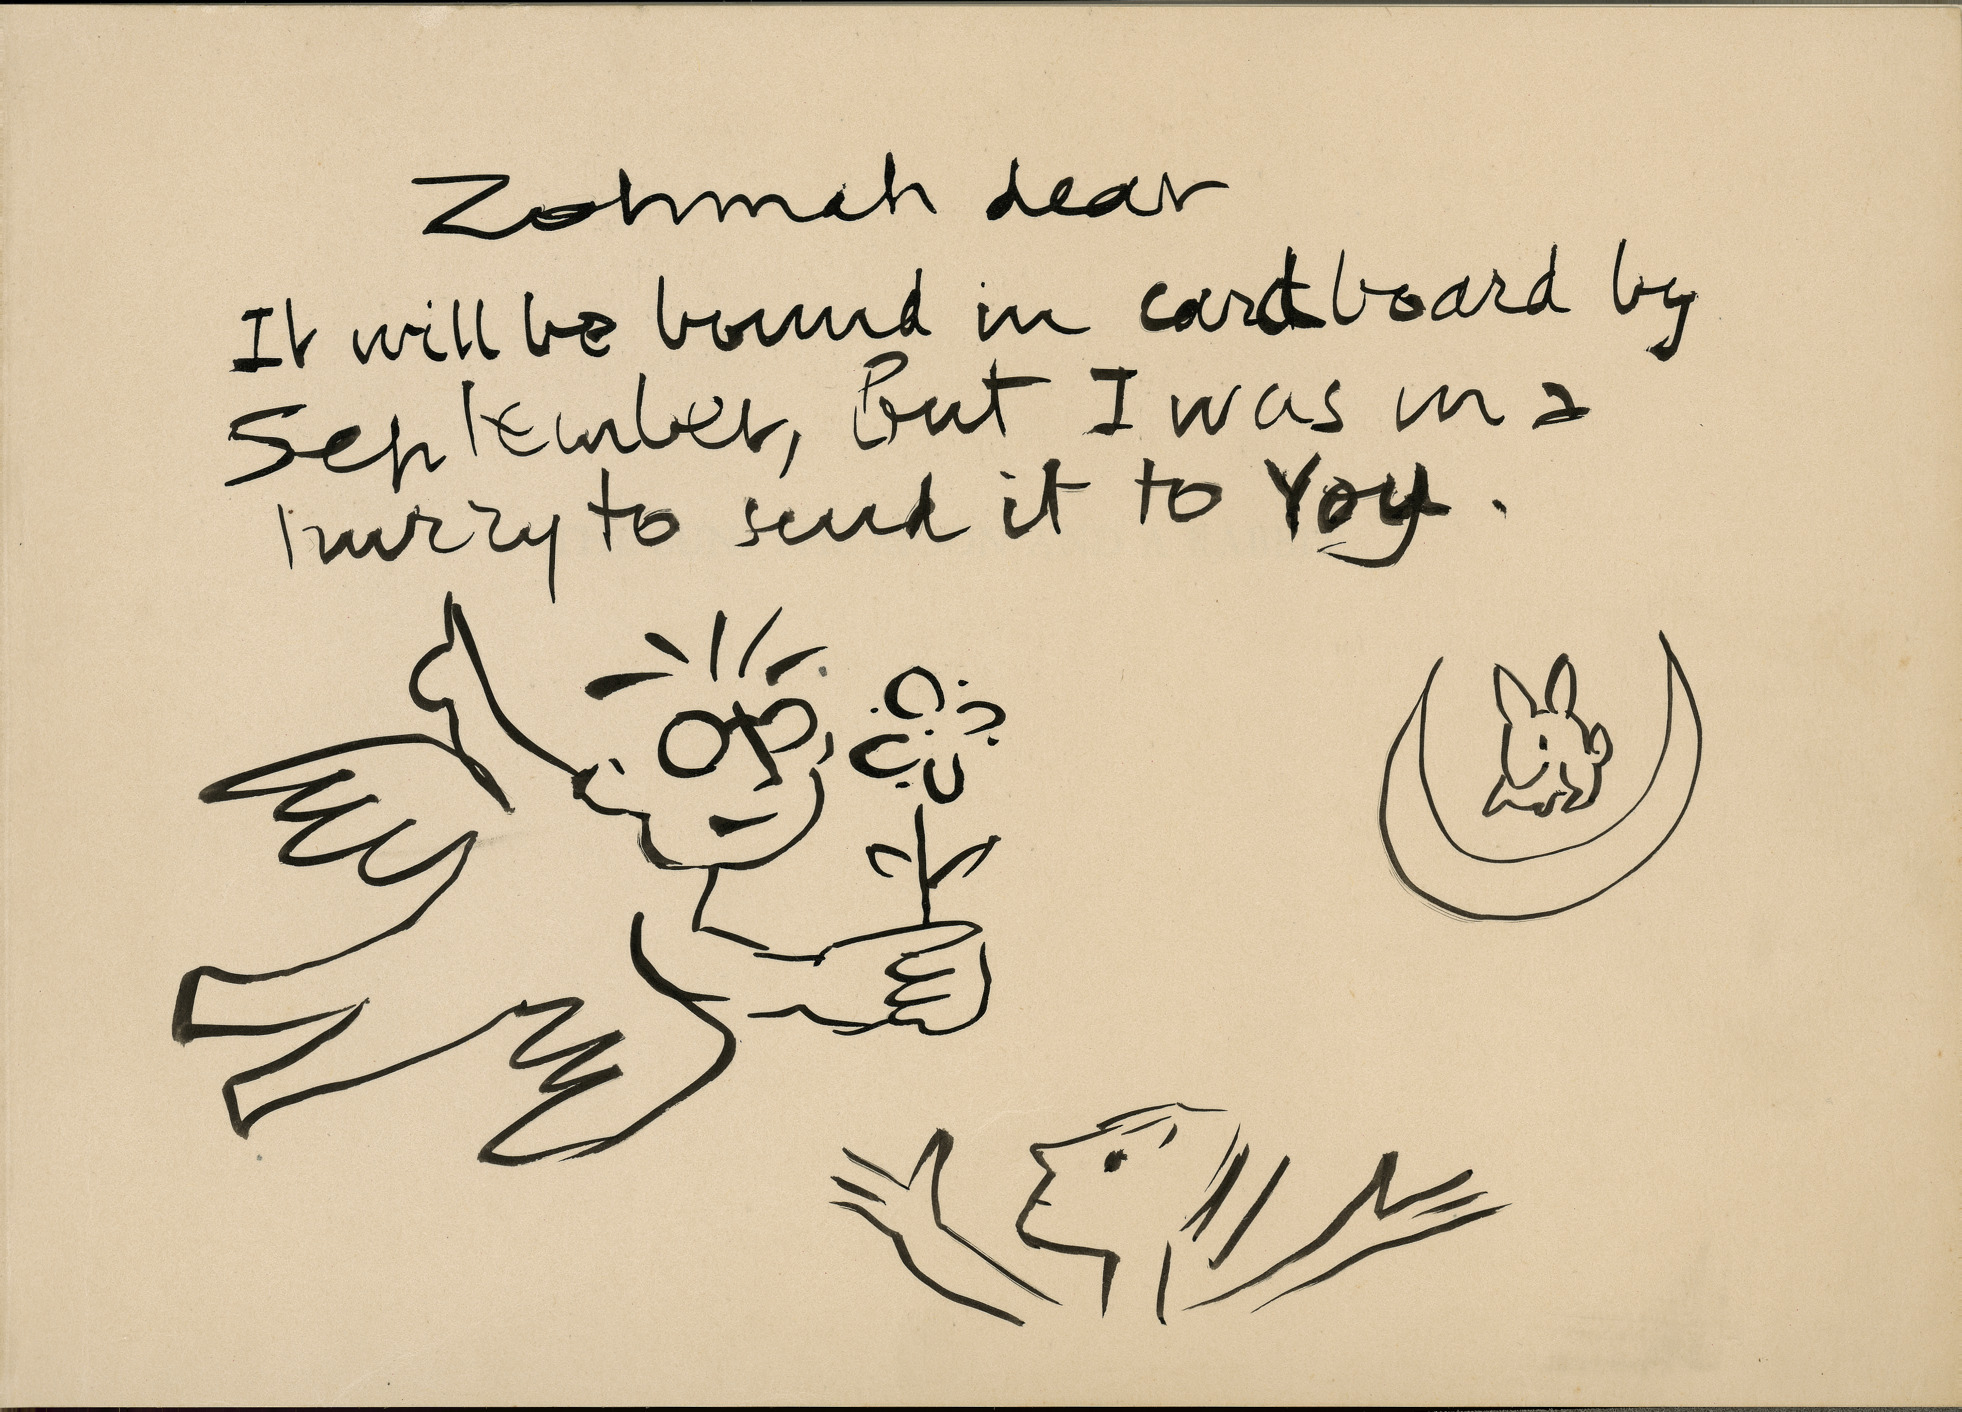 Zohmah dear
It will be bound in cardboard by
September, But I was in a
hurry to send it to You.